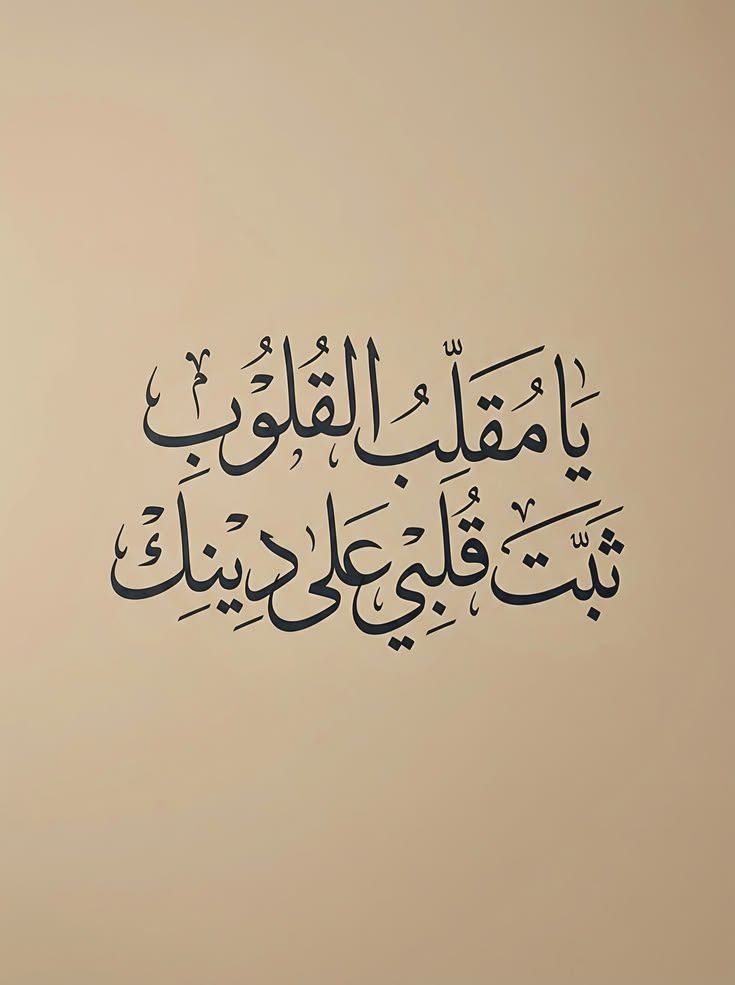 يَا مُقَلِّبُ القُلُوبِ
ثَبَّت قُلَبِي عَلى دِينِكَ